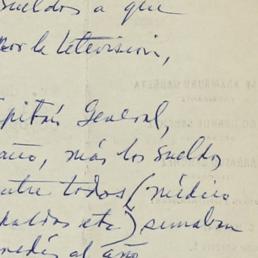 sueldos a que
por la television,
Capitán General,
año, más los sueldos
entre todos (médico
etc) sumaban
al año